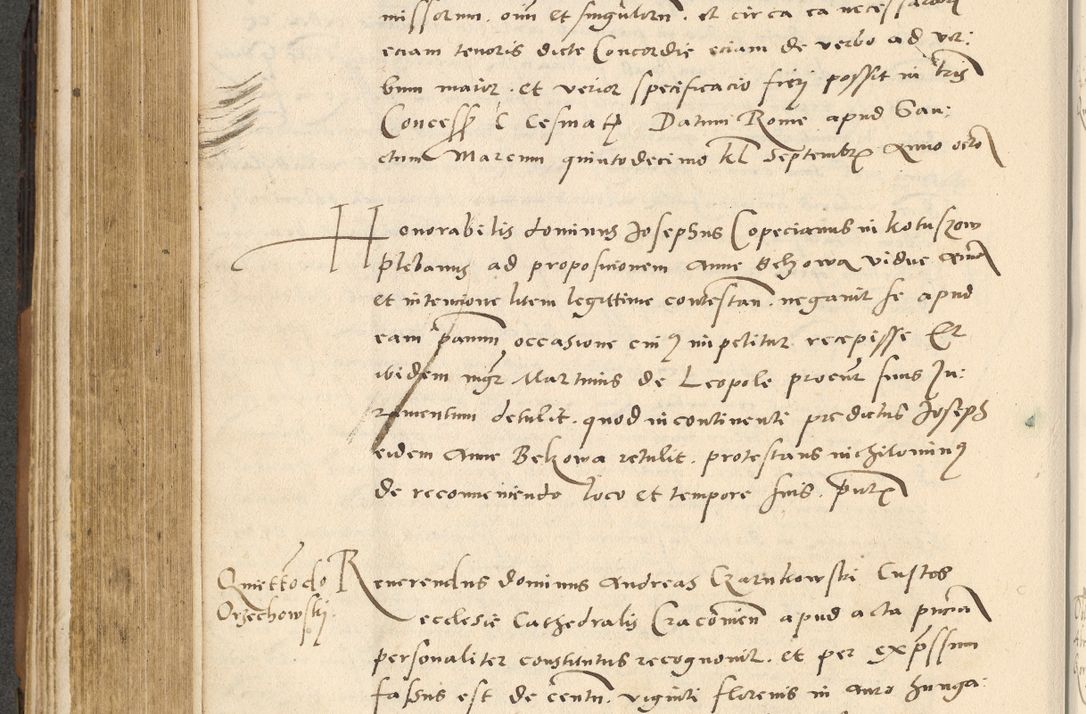 missorum. om̄ et singulorū. et circa ea necessariorū
eciam tenoris dicte Concordie eciam de verbo ad ver:
bum maior. et verior specificacio fieri possit in lris
Concess C Cesmatꝭ Datum Rome apud San:
ctum Marcum quintodecimo kl Septembrꝭ Anno octo
Honorabilis dominus Josephus Copecianus in Kotuszow
plebanus ad proposicionem Anne Belzowa vidue
et intencione litem legittime contestan. negavit se apud
eam occasione cuiꝯ impetitur recepisse Et
ibidem mgr Martinus de Leopole procur suus Ju:
ramentum detulit. quod incontinenti predictus Joseph
eidem Anne Belzowa retulit. protestans nichilominꝯ
de reconveniendo loco et tempore suis. pntꝭ
Quiettō do
Orzechowskj.
Reverendus dominus Andreas Czarnkowski Custos
ecclesie Cathedralis Cracovien apud acta pncia
personaliter constitutus recognovit. et per expssum
fassus est de centū. viginti florenis in auro hunga: